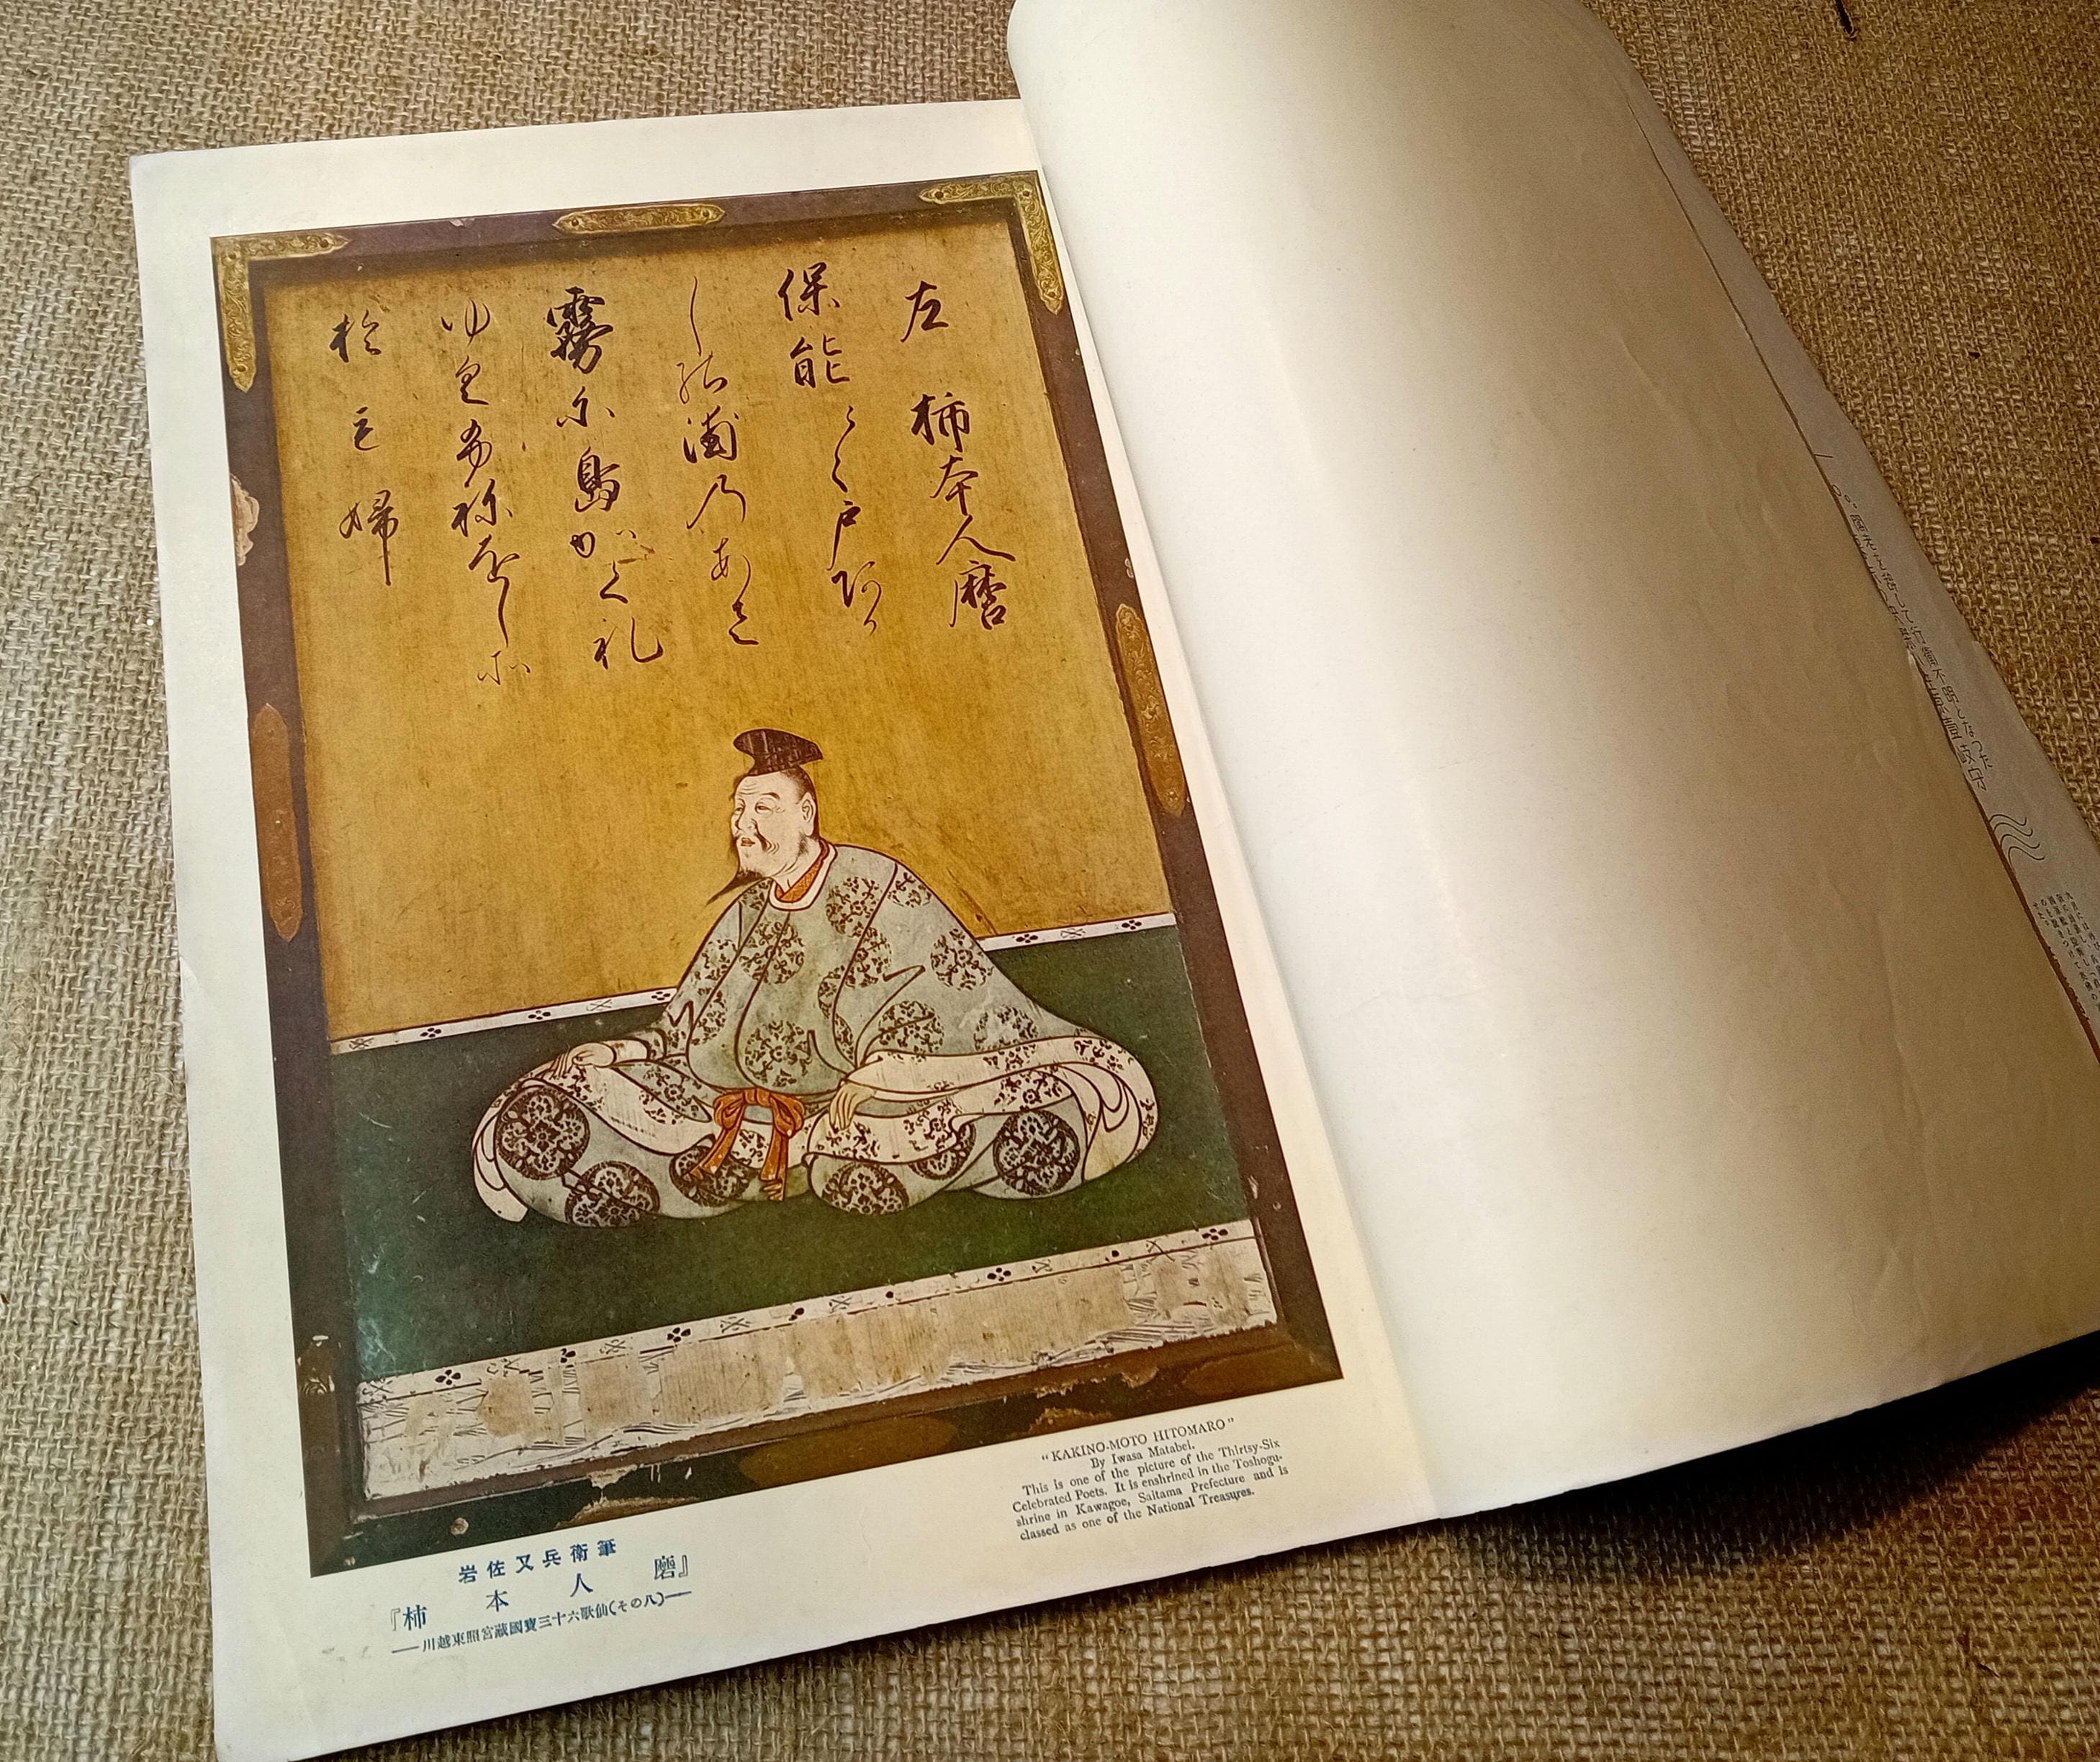 左 柿本人麿
保能〱戸阿可
し能浦乃あさ
霧尓島かく礼
ゆく布祢をしそ
於毛婦
"KAKINO-MOTO HITOMARO"
By Iwasa Matabei.
This is one of the picture of the Thirtsy-Six
Celebrated Poets. It is enshrined in the Toshogu-
shrine in Kawagoe, Saitama Prefecture and is
classed as one of the National Treasures.
岩佐又兵衛筆
『柿本人麿』
──川越東照宮藏國寶三十六歌仙(その八)──